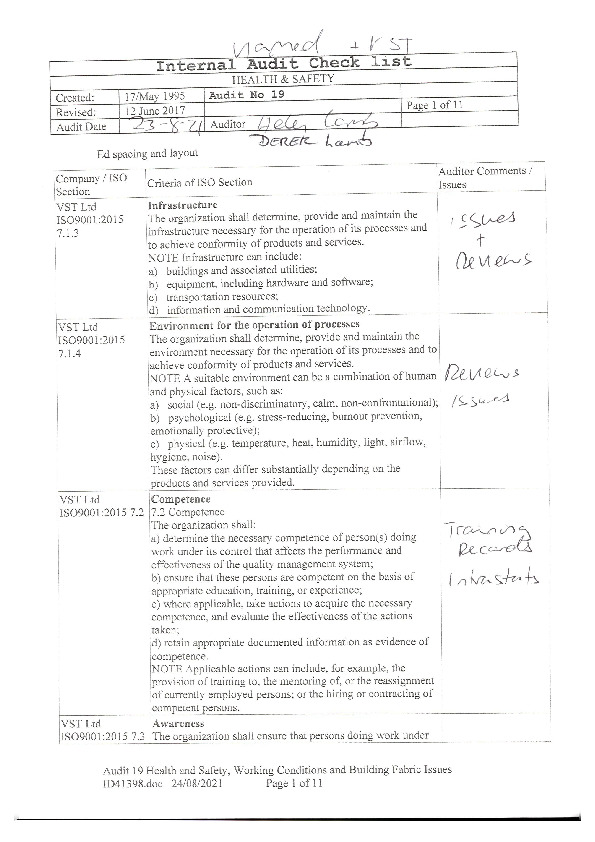 Named + VST
Internal Audit Check list
HEALTH & SAFETY
Created: 17/May 1995 Audit No 19 Page 1 of 11
Revised: 12 June 2017
Audit Date 23-8-21 Auditor Helen Lamb
DEREK Lamb
Ed spacing and layout
Company / ISO Section Criteria of ISO Section Auditor Comments / Issues
VST Ltd
ISO9001:2015
7.1.3
Infrastructure
The organization shall determine, provide and maintain the
infrastructure necessary for the operation of its processes and
to achieve conformity of products and services.
NOTE Infrastructure can include:
a) buildings and associated utilities;
b) equipment, including hardware and software;
c) transportation resources;
d) information and communication technology.
issues
+
Reviews
VST Ltd
ISO9001:2015
7.1.4
Environment for the operation of processes
The organization shall determine, provide and maintain the
environment necessary for the operation of its processes and to
achieve conformity of products and services.
NOTE A suitable environment can be a combination of human
and physical factors, such as:
a) social (e.g. non-discriminatory, calm, non-confrontational);
b) psychological (e.g. stress-reducing, burnout prevention,
emotionally protective);
c) physical (e.g. temperature, heat, humidity, light, airflow,
hygiene, noise).
These factors can differ substantially depending on the
products and services provided.
Reviews
issues
VST Ltd
ISO9001:2015 7.2
Competence
7.2 Competence
The organization shall:
a) determine the necessary competence of person(s) doing
work under its control that affects the performance and
effectiveness of the quality management system;
b) ensure that these persons are competent on the basis of
appropriate education, training, or experience;
c) where applicable, take actions to acquire the necessary
competence, and evaluate the effectiveness of the actions
taken;
d) retain appropriate documented information as evidence of
competence.
NOTE Applicable actions can include, for example, the
provision of training to, the mentoring of, or the reassignment
of currently employed persons; or the hiring or contracting of
competent persons.
Training
Records
VST Ltd
ISO9001:2015 7.3
Awareness
The organization shall ensure that persons doing work under
Audit 19 Health and Safety, Working Conditions and Building Fabric Issues
ID41398.doc 24/08/2021 Page 1 of 11